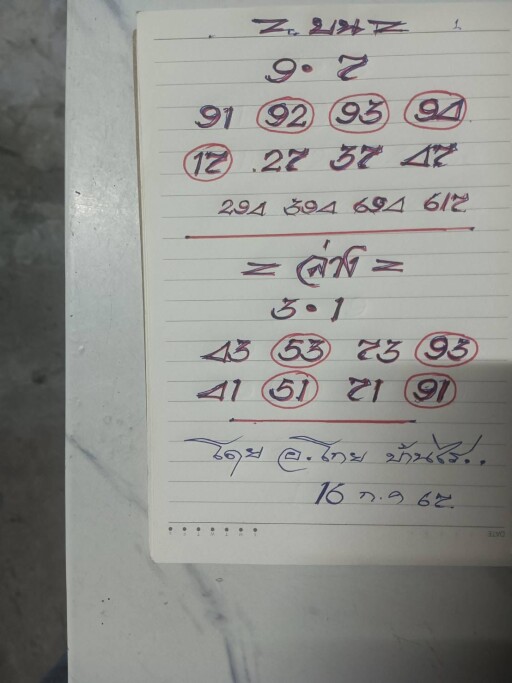 = บน =
9 • 7
91 92 93 94
17 27 37 47
294 394 694 617
= ล่าง =
3 • 1
43 53 73 93
41 51 71 91
โดย อ.ไทย บ้านไร่..
16 ก.ค 67